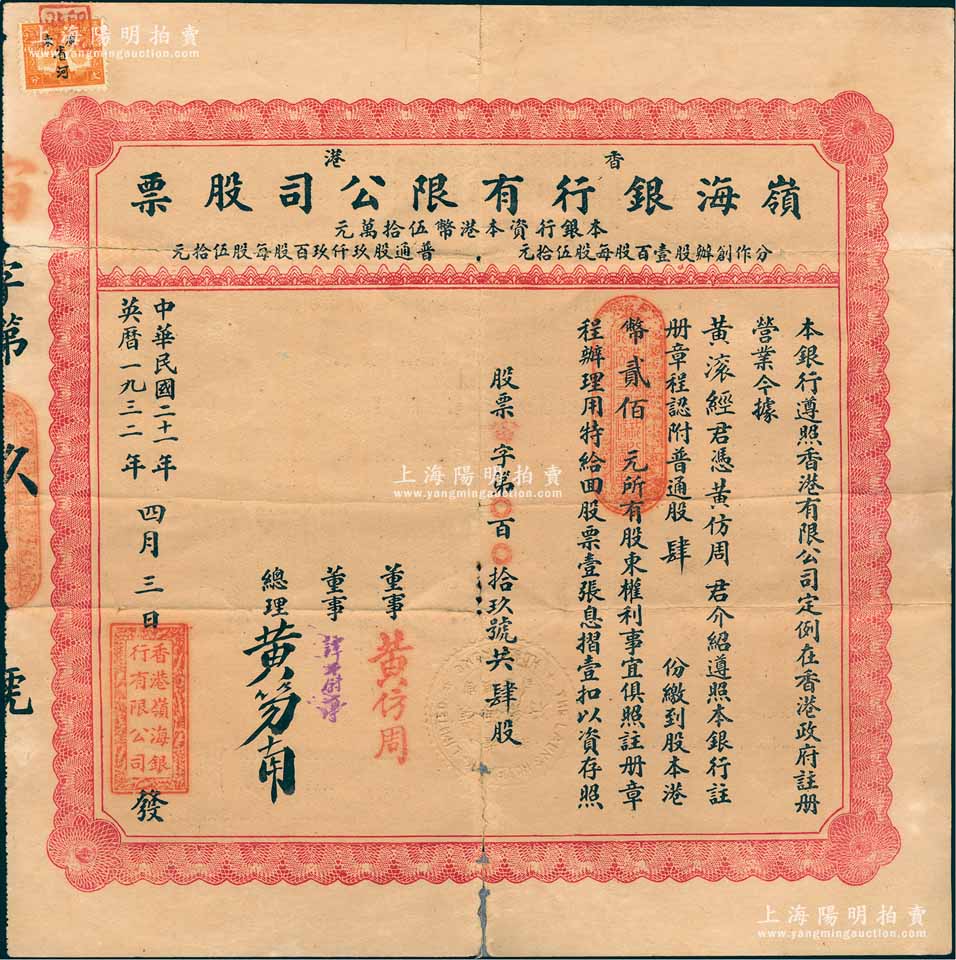 上海陽明拍賣
www.yangmingauction.com
香港
嶺海銀行有限公司股票
本銀行資本港幣伍拾萬元
分作創辦股壹百股每股伍拾元
普通股玖仟玖百股每股伍拾元
本銀行遵照香港有限公司定例在香港政府註册
營業今據
黃滚經君憑黃仿周君介紹遵照本銀行註
册章程認附普通股肆份繳到股本港
幣貳佰元所有股東權利事宜俱照註册章
程辦理用特給回股票壹張息摺壹扣以資存照
股票字第〇百〇拾玖號共肆股
董事 黃仿周
董事
總理 黃笏南
中華民國二十一年
英曆一九三二年
四月三日發
香港嶺海銀
行有限公司
字第玖號
上海陽明拍賣
www.yangmingauction.com
上海陽明拍賣
www.yangmingauction.com